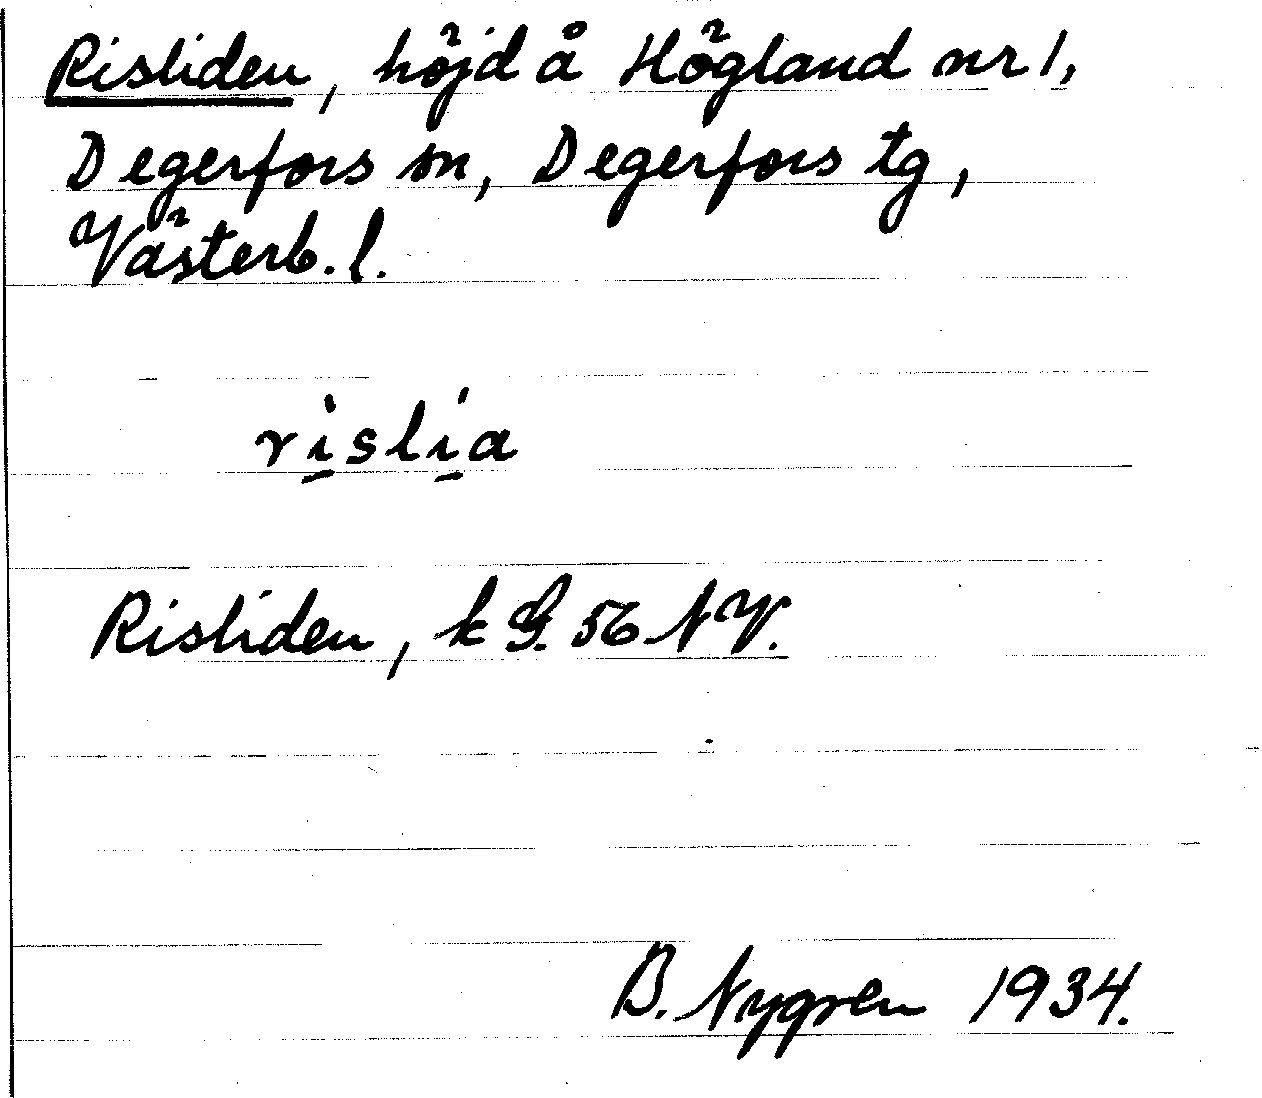 Risliden, höjd å Högland nr 1,
Degerfors sn, Degerfors tg,
Västerb. l.
ri̱sli̱a
Risliden, k G. 56 NV.
B. Nygren 1934.